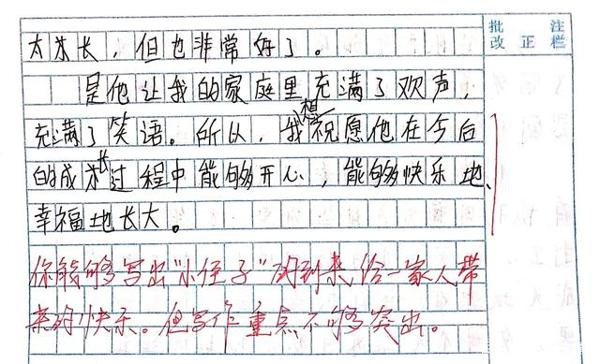 批 注
改 正 栏
太长，但也非常好了。
是他让我的家庭里充满了欢声，
充满了笑语。所以，我想祝愿他在今后
的成长过程中能够开心，能够快乐地、
幸福地长大。
你能够写出“小侄子”的到来，给一家人带
来的快乐。但写作重点不够突出。